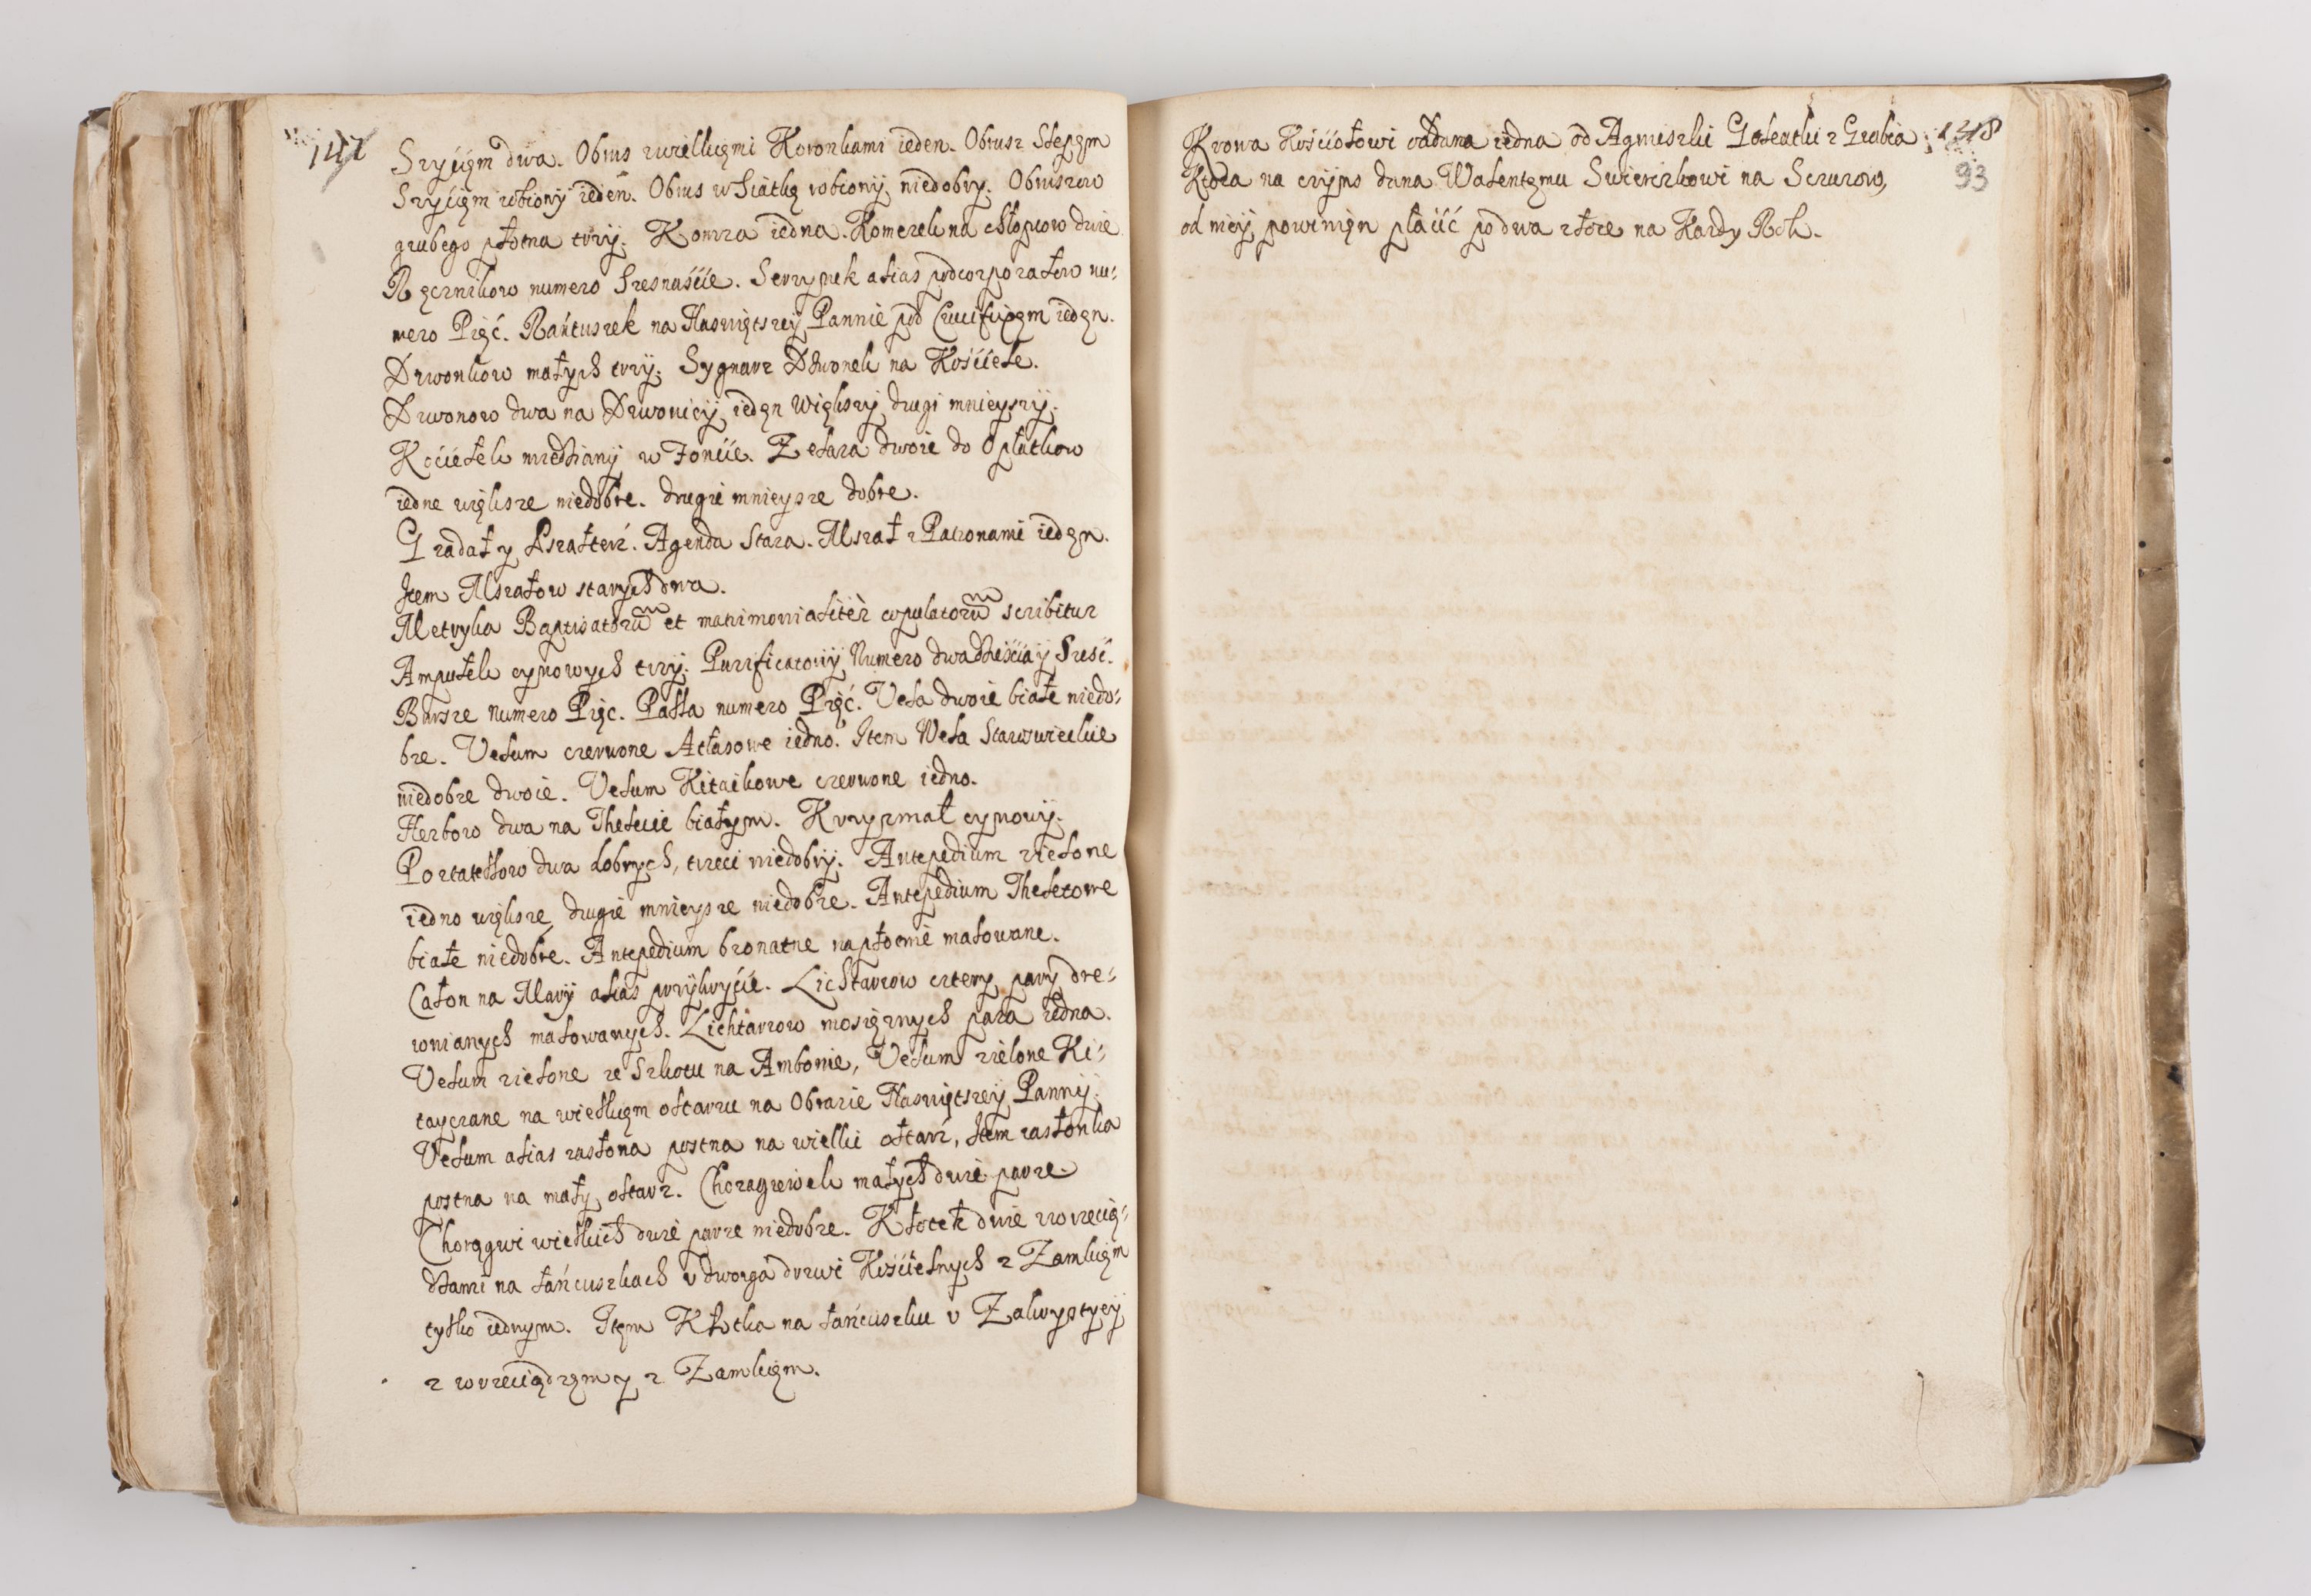 147
Szyciem dwa. Obrus z wielkiemi Koronkami ieden. Obrusz Slepem
Szyciem robiony ieden. Obrus w Siatkę robionÿ niedobry. Obruszow
grubego płotna trzÿ. Komza iedna. Komezek na chłopcow dwie
Ręcznikow numero Szesnaście. Serzynek alias podcorporałow nu:
mero Pięć. Rańtuszek na Naswiętszeÿ Pannie pod Crucifixem ieden.
Dzwonkow małych trzÿ. Sygnarz Dzwonek na Kościele.
Dzwonow dwa na Dzwonicÿ, ieden Większÿ drugi mnieyszÿ.
Kociełek miedzianÿ w Foncie. Zelaza dwoie do Opłatkow
iedne większe niedobre. drugie mnieysze dobre.
Gradał y Psałterz. Agenda Stara. Mszał z Patronami ieden.
Item Mszałow starych dwa.
Metryka Baptisatorum et matrimonialiter copulatorum scribitur
Ampułek cynowych trzÿ. Purificatorÿ Numero dwadzieścia ÿ Sześć.
Bursze Numero Pięc. Palla numero Pięć. Vela dwoie białe niedo:
bre. Velum czerwone Atłasowe iedno. Item Wela Staroswieckie
niedobre dwoie. Velum Kitaikowe czerwone iedno.
Herbow dwa na Thelecie białym. Krzyzmał cynowÿ.
Portatellow dwa dobrych, trzeci niedobrÿ. Antepedium zielone
iedno większe, drugie mnieysze niedobre. Antepedium Theletowe
białe niedobre. Antepedium bronatne na płotnie malowane.
Całon na Marÿ alias przÿkrycie. Lichtarzow cztery parÿ dre:
wnianych malowanych. Lichtarzow mosięznych para iedna.
Velum zielone ze Szkotu na Ambonie, Velum zielone Ki:
tayczane na wielkiem ołtarzu na Obrazie Naswiętszeÿ Pannÿ.
Velum alias zasłona postna na wielki ołtarz, Item zasłonka
postna na mały ołtarz. Choragiewek małych dwie parze
Chorągwi wielkich dwie parze niedobre. Kłotek dwie z wrzecią:
dzami na łańcuszkach v dwoyga drzwi Kościelnych z Zamkiem
tylko iednym. Item Kłotka na łańcuszku v Zakrystyeÿ
z wrzeciądzem y z Zamkiem.
148
93
Krowa Kościołowi oddana iedna od Agnieszki Gołeatki z Grabia
Ktora na czynsz dana Walentemu Swierczkowi na Sczurow,
od nieÿ powinien płacić po dwa złote na Kazdy Rok.